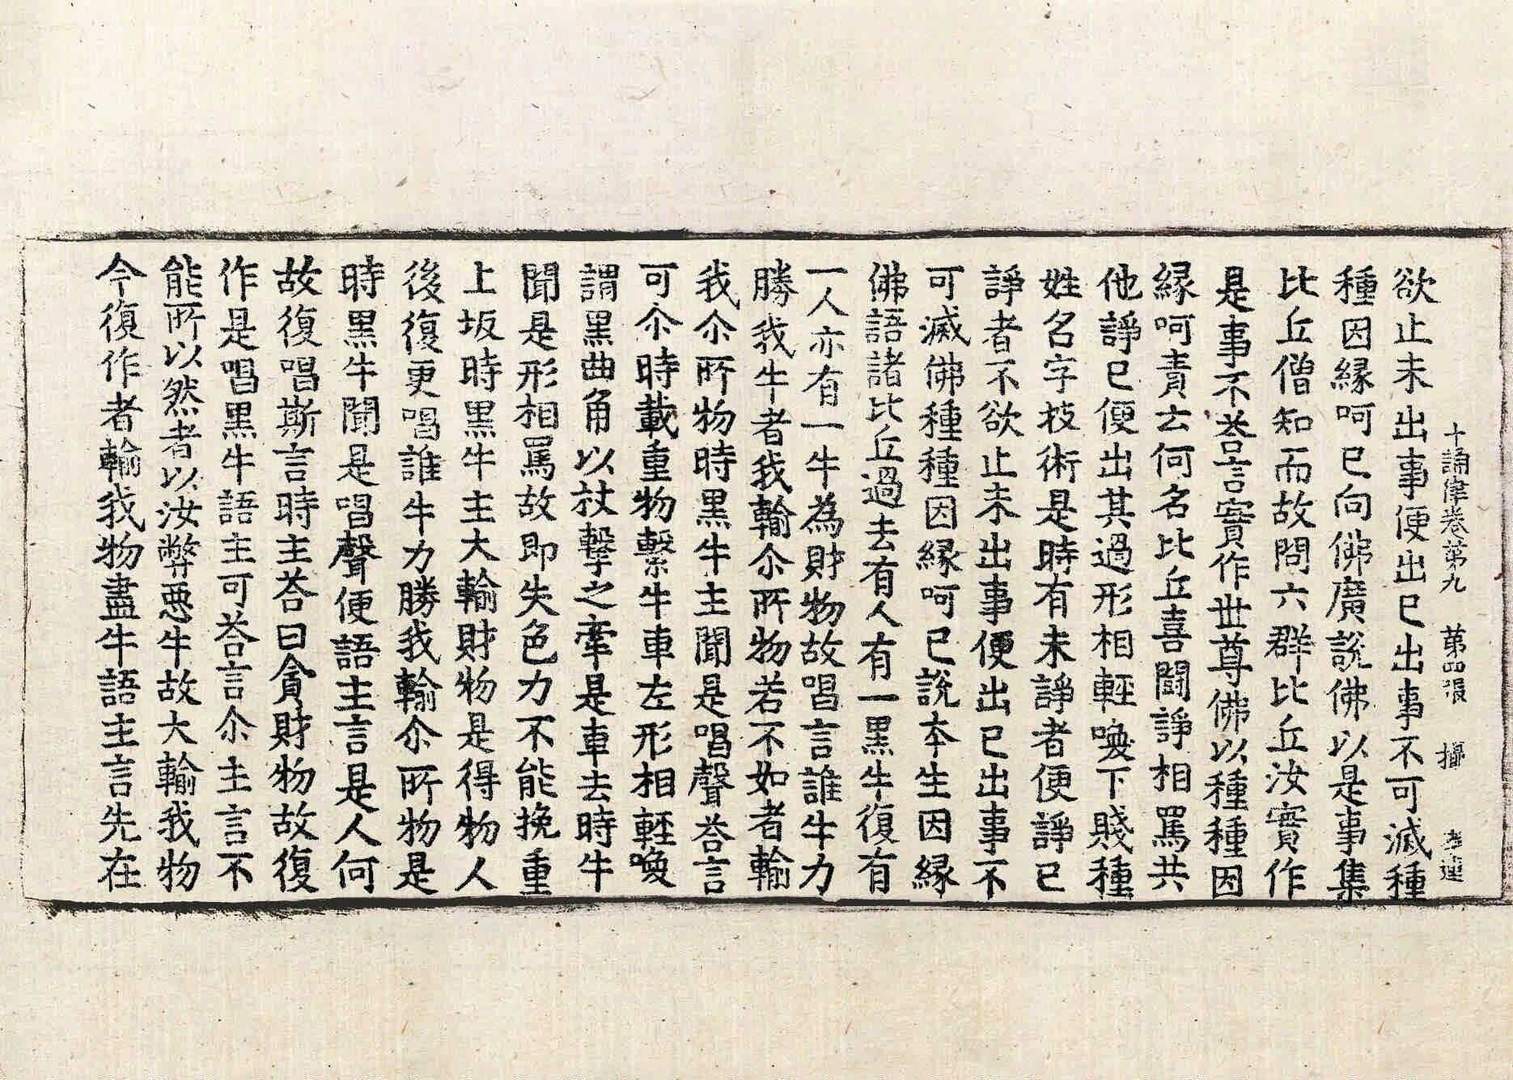 十誦律卷第九　第四張　攝
欲止未出事便出已出事不可滅種
種因緣呵已向佛廣說佛以是事集
比丘僧知而故問六群比丘汝實作
是事不荅言實作世尊佛以種種因
緣呵責云何名比丘喜鬪諍相罵共
他諍已便出其過形相輕喚下賤種
姓名字技術是時有未諍者便諍已
諍者不欲止未出事便出已出事不
可滅佛種種因緣呵已說本生因緣
佛語諸比丘過去有人有一黑牛復有
一人亦有一牛為財物故唱言誰牛力
勝我牛者我輸尒所物若不如者輸
我尒所物時黑牛主聞是唱聲荅言
可尒時載重物繫牛車左形相輕喚
謂黑曲角以杖擊之牽是車去時牛
聞是形相罵故即失色力不能挽重
上坂時黑牛主大輸財物是得物人
後復更唱誰牛力勝我輸尒所物是
時黑牛聞是唱聲便語主言是人何
故復唱斯言時主荅曰貪財物故復
作是唱黑牛語主可荅言尒主言不
能所以然者以汝弊惡牛故大輸我物
今復作者輸我物盡牛語主言先在